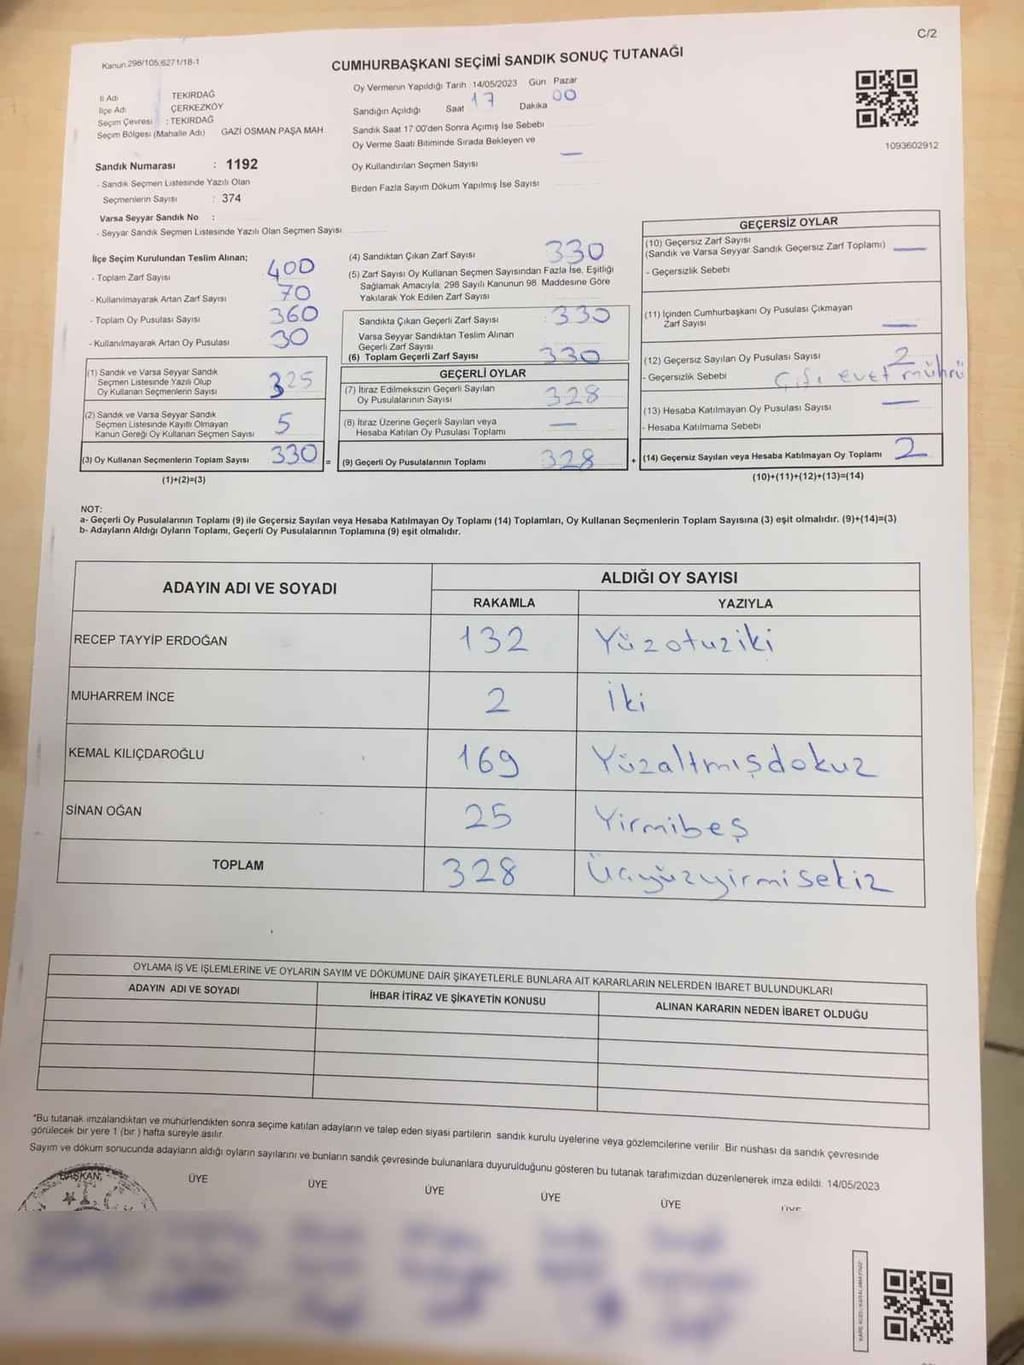 C/2
Kanun 298/105;6271/18-1
CUMHURBAŞKANI SEÇİMİ SANDIK SONUÇ TUTANAĞI
1093602912
İl Adı TEKİRDAĞ
İlçe Adı ÇERKEZKÖY
Seçim Çevresi : TEKİRDAĞ
Seçim Bölgesi (Mahalle Adı) GAZİ OSMAN PAŞA MAH.
Sandık Numarası : 1192
- Sandık Seçmen Listesinde Yazılı Olan
Seçmenlerin Sayısı : 374
Varsa Seyyar Sandık No :
- Seyyar Sandık Seçmen Listesinde Yazılı Olan Seçmen Sayısı
Oy Vermenin Yapıldığı Tarih 14/05/2023 Gün Pazar
Sandığın Açıldığı Saat 17 Dakika 00
Sandık Saat 17:00'den Sonra Açımış İse Sebebi
Oy Verme Saati Bitiminde Sırada Bekleyen ve
Oy Kullandırılan Seçmen Sayısı —
Birden Fazla Sayım Döküm Yapılmış İse Sayısı
İlçe Seçim Kurulundan Teslim Alınan;
- Toplam Zarf Sayısı 400
- Kullanılmayarak Artan Zarf Sayısı 70
- Toplam Oy Pusulası Sayısı 360
- Kullanılmayarak Artan Oy Pusulası 30
(1) Sandık ve Varsa Seyyar Sandık
Seçmen Listesinde Yazılı Olup
Oy Kullanan Seçmenlerin Sayısı 325
(2) Sandık ve Varsa Seyyar Sandık
Seçmen Listesinde Kayıtlı Olmayan
Kanun Gereği Oy Kullanan Seçmen Sayısı 5
(3) Oy Kullanan Seçmenlerin Toplam Sayısı 330 =
(1)+(2)=(3)
(4) Sandıktan Çıkan Zarf Sayısı 330
(5) Zarf Sayısı Oy Kullanan Seçmen Sayısından Fazla İse, Eşitliği
Sağlamak Amacıyla, 298 Sayılı Kanunun 98. Maddesine Göre
Yakılarak Yok Edilen Zarf Sayısı
Sandıkta Çıkan Geçerli Zarf Sayısı : 330
Varsa Seyyar Sandıktan Teslim Alınan
Geçerli Zarf Sayısı
(6) Toplam Geçerli Zarf Sayısı 330
GEÇERLİ OYLAR
(7) İtiraz Edilmeksizin Geçerli Sayılan
Oy Pusulalarının Sayısı 328
(8) İtiraz Üzerine Geçerli Sayılan veya
Hesaba Katılan Oy Pusulası Toplamı —
(9) Geçerli Oy Pusulalarının Toplamı 328 +
GEÇERSİZ OYLAR
(10) Geçersiz Zarf Sayısı
(Sandık ve Varsa Seyyar Sandık Geçersiz Zarf Toplamı) —
- Geçersizlik Sebebi
(11) İçinden Cumhurbaşkanı Oy Pusulası Çıkmayan
Zarf Sayısı —
(12) Geçersiz Sayılan Oy Pusulası Sayısı 2
- Geçersizlik Sebebi Çift evet mührü
(13) Hesaba Katılmayan Oy Pusulası Sayısı —
- Hesaba Katılmama Sebebi
(14) Geçersiz Sayılan veya Hesaba Katılmayan Oy Toplamı 2
(10)+(11)+(12)+(13)=(14)
NOT:
a- Geçerli Oy Pusulalarının Toplamı (9) ile Geçersiz Sayılan veya Hesaba Katılmayan Oy Toplamı (14) Toplamları, Oy Kullanan Seçmenlerin Toplam Sayısına (3) eşit olmalıdır. (9)+(14)=(3)
b- Adayların Aldığı Oyların Toplamı, Geçerli Oy Pusulalarının Toplamına (9) eşit olmalıdır.
ADAYIN ADI VE SOYADI ALDIĞI OY SAYISI
RAKAMLA YAZIYLA
RECEP TAYYİP ERDOĞAN 132 Yüzotuziki
MUHARREM İNCE 2 İki
KEMAL KILIÇDAROĞLU 169 Yüzaltmışdokuz
SİNAN OĞAN 25 Yirmibeş
TOPLAM 328 Üçyüzyirmisekiz
OYLAMA İŞ VE İŞLEMLERİNE VE OYLARIN SAYIM VE DÖKÜMÜNE DAİR ŞİKAYETLERLE BUNLARA AİT KARARLARIN NELERDEN İBARET BULUNDUKLARI
ADAYIN ADI VE SOYADI İHBAR İTİRAZ VE ŞİKAYETİN KONUSU ALINAN KARARIN NEDEN İBARET OLDUĞU
*Bu tutanak imzalandıktan ve mühürlendikten sonra seçime katılan adayların ve talep eden siyasi partilerin sandık kurulu üyelerine veya gözlemcilerine verilir. Bir nüshası da sandık çevresinde
görülecek bir yere 1 (bir ) hafta süreyle asılır.
Sayım ve döküm sonucunda adayların aldığı oyların sayılarını ve bunların sandık çevresinde bulunanlara duyurulduğunu gösteren bu tutanak tarafımızdan düzenlenerek imza edildi. 14/05/2023
BAŞKAN ÜYE ÜYE ÜYE ÜYE ÜYE ÜYE